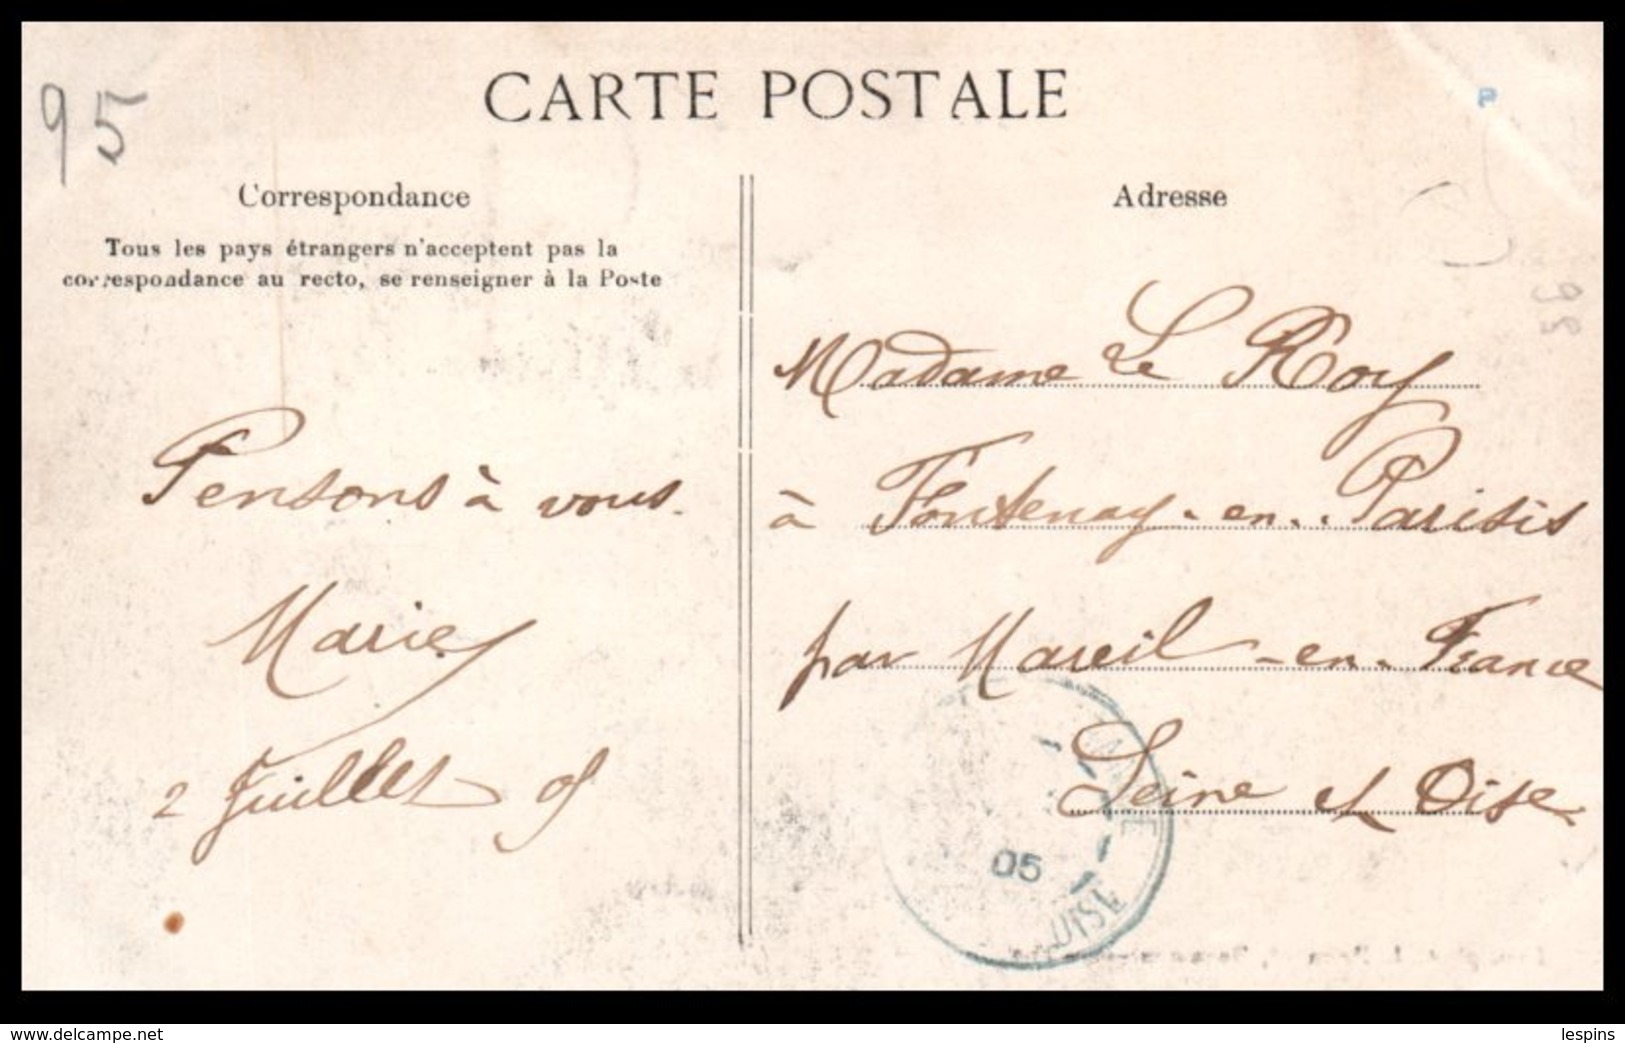 95
CARTE POSTALE
P
Correspondance
Tous les pays étrangers n'acceptent pas la
correspondance au recto, se renseigner à la Poste
Pensons à vous.
Marie
2 Juillet 05
Adresse
Madame Le Roy
à Fontenay-en-Parisis
par Mareil-en-France
Seine et Oise
05
delcampe.net
lespins